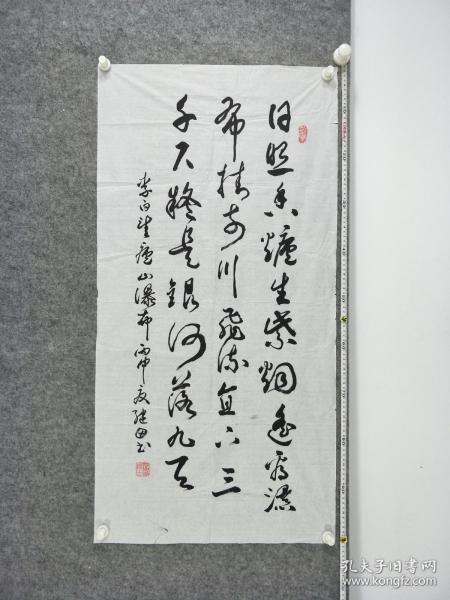 日照香爐生紫烟遙看瀑
布挂前川飛流直下三
千尺疑是銀河落九天
李白望廬山瀑布 丙申夏田书
孔夫子旧书网
www.kongfz.com